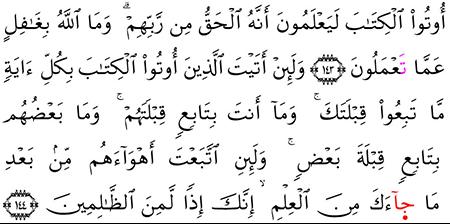 أُوتُوا۟ ٱلْكِتَٰبَ لَيَعْلَمُونَ أَنَّهُ ٱلْحَقُّ مِن رَّبِّهِمْ ۗ وَمَا ٱللَّهُ بِغَٰفِلٍ
عَمَّا تَعْمَلُونَ ﴿١٤٣﴾ وَلَئِنْ أَتَيْتَ ٱلَّذِينَ أُوتُوا۟ ٱلْكِتَٰبَ بِكُلِّ ءَايَةٍ
مَّا تَبِعُوا۟ قِبْلَتَكَ ۚ وَمَآ أَنتَ بِتَابِعٍ قِبْلَتَهُمْ ۚ وَمَا بَعْضُهُم
بِتَابِعٍ قِبْلَةَ بَعْضٍ ۚ وَلَئِنِ ٱتَّبَعْتَ أَهْوَآءَهُم مِّنۢ بَعْدِ
مَا جَآءَكَ مِنَ ٱلْعِلْمِ ۙ إِنَّكَ إِذًا لَّمِنَ ٱلظَّٰلِمِينَ ﴿١٤٤﴾